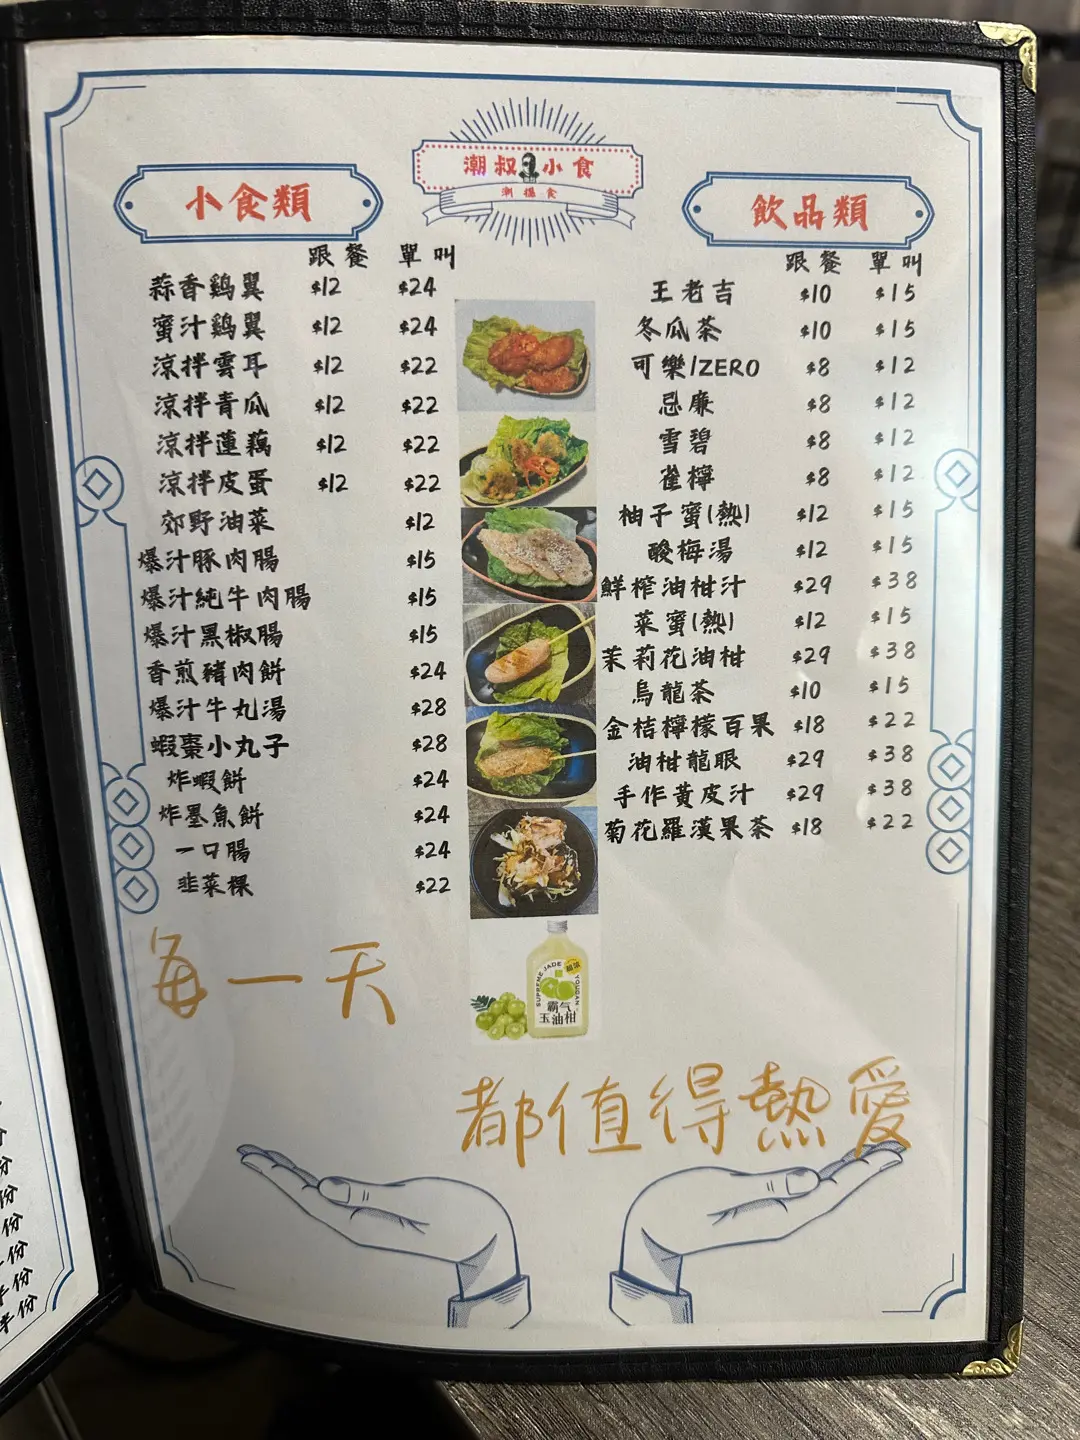 潮叔小食
潮樸食
小食類
跟餐 單叫
蒜香鷄翼 $12 $24
蜜汁鷄翼 $12 $24
涼拌雲耳 $12 $22
涼拌青瓜 $12 $22
涼拌蓮藕 $12 $22
涼拌皮蛋 $12 $22
郊野油菜 $12
爆汁豚肉腸 $15
爆汁純牛肉腸 $15
爆汁黑椒腸 $15
香煎豬肉餅 $24
爆汁牛丸湯 $28
蝦棗小丸子 $28
炸蝦餅 $24
炸墨魚餅 $24
一口腸 $24
韭菜粿 $22
飲品類
跟餐 單叫
王老吉 $10 $15
冬瓜茶 $10 $15
可樂/ZERO $8 $12
忌廉 $8 $12
雪碧 $8 $12
雀檸 $8 $12
柚子蜜(熱) $12 $15
酸梅湯 $12 $15
鮮榨油柑汁 $29 $38
菜蜜(熱) $12 $15
茉莉花油柑 $29 $38
烏龍茶 $10 $15
金桔檸檬百果 $18 $22
油柑龍眼 $29 $38
手作黃皮汁 $29 $38
菊花羅漢果茶 $18 $22
SUPREME JADE YOUGAN
霸气
玉油柑
每一天
都值得熱愛
份
份
份
份
份
半份
半份